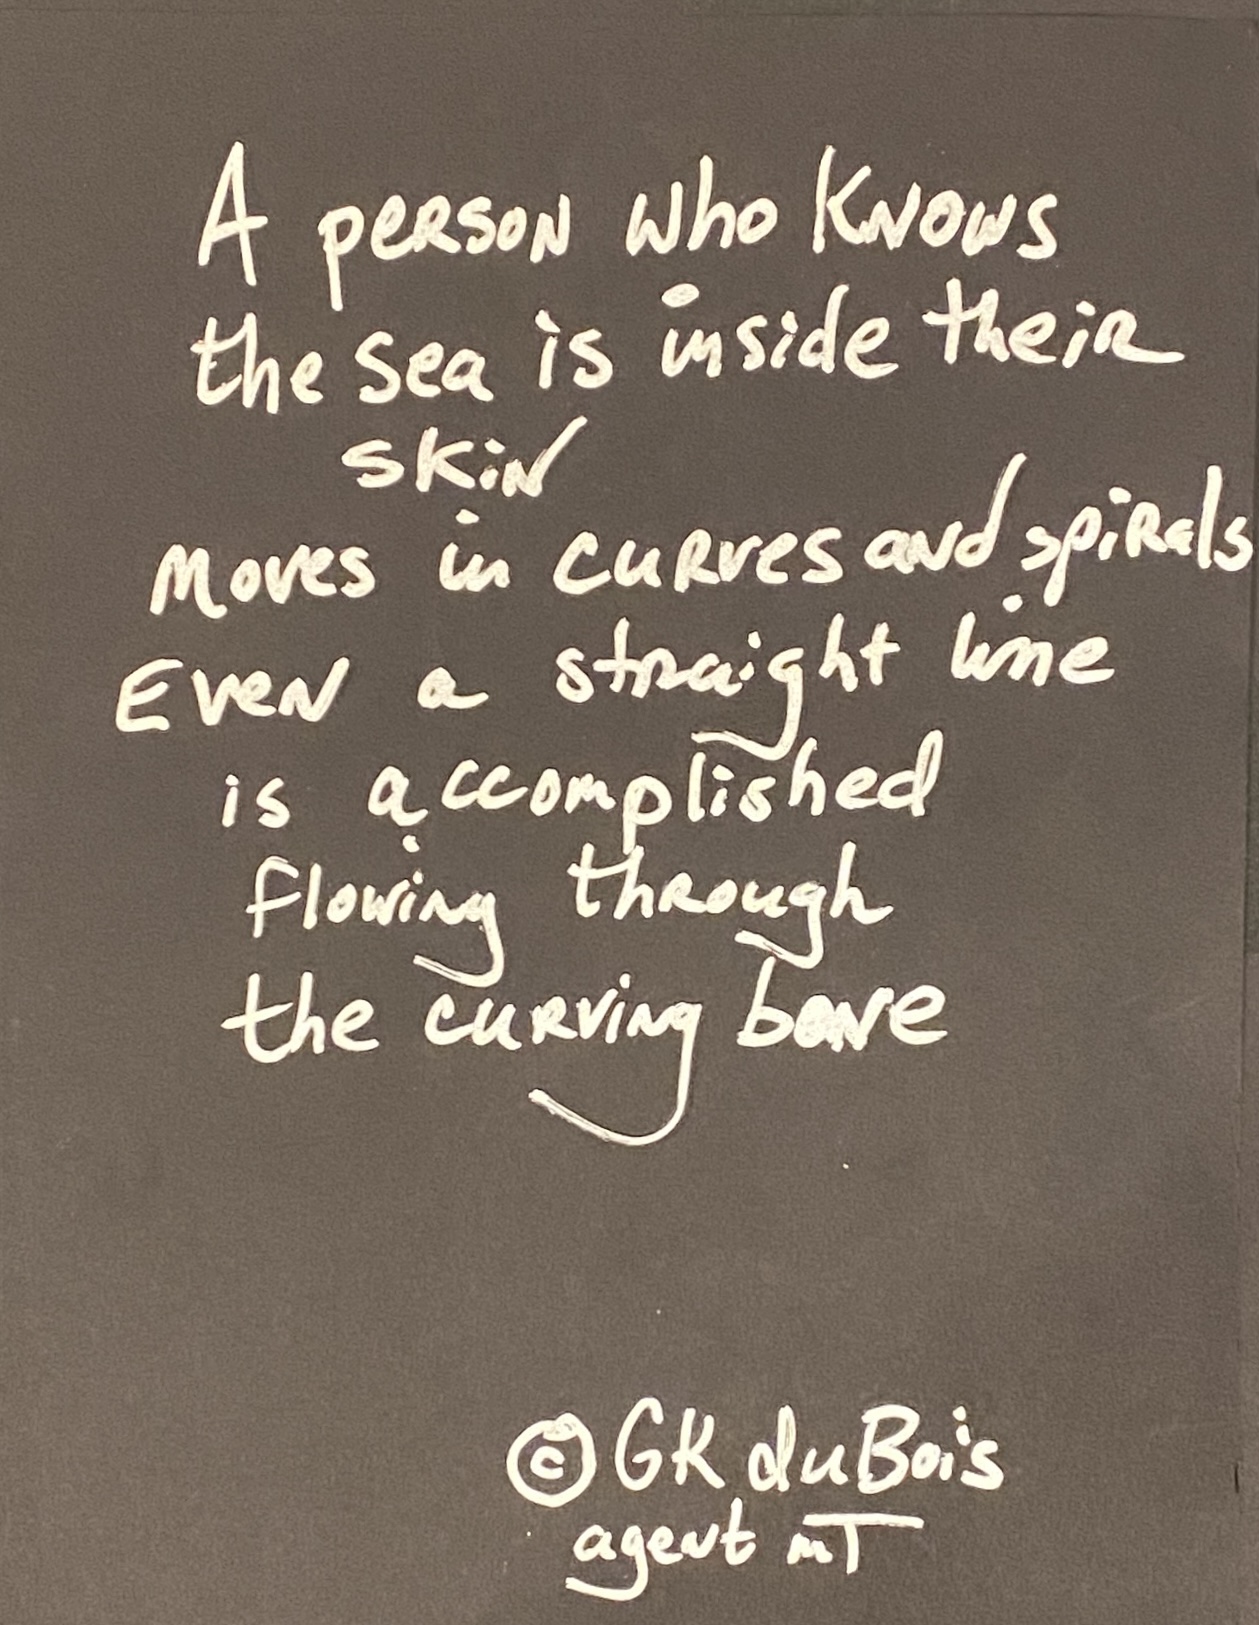 A person who knows
the sea is inside their
skin
moves in curves and spirals
Even a straight line
is accomplished
flowing through
the curving bone
© GK duBois
agent mT